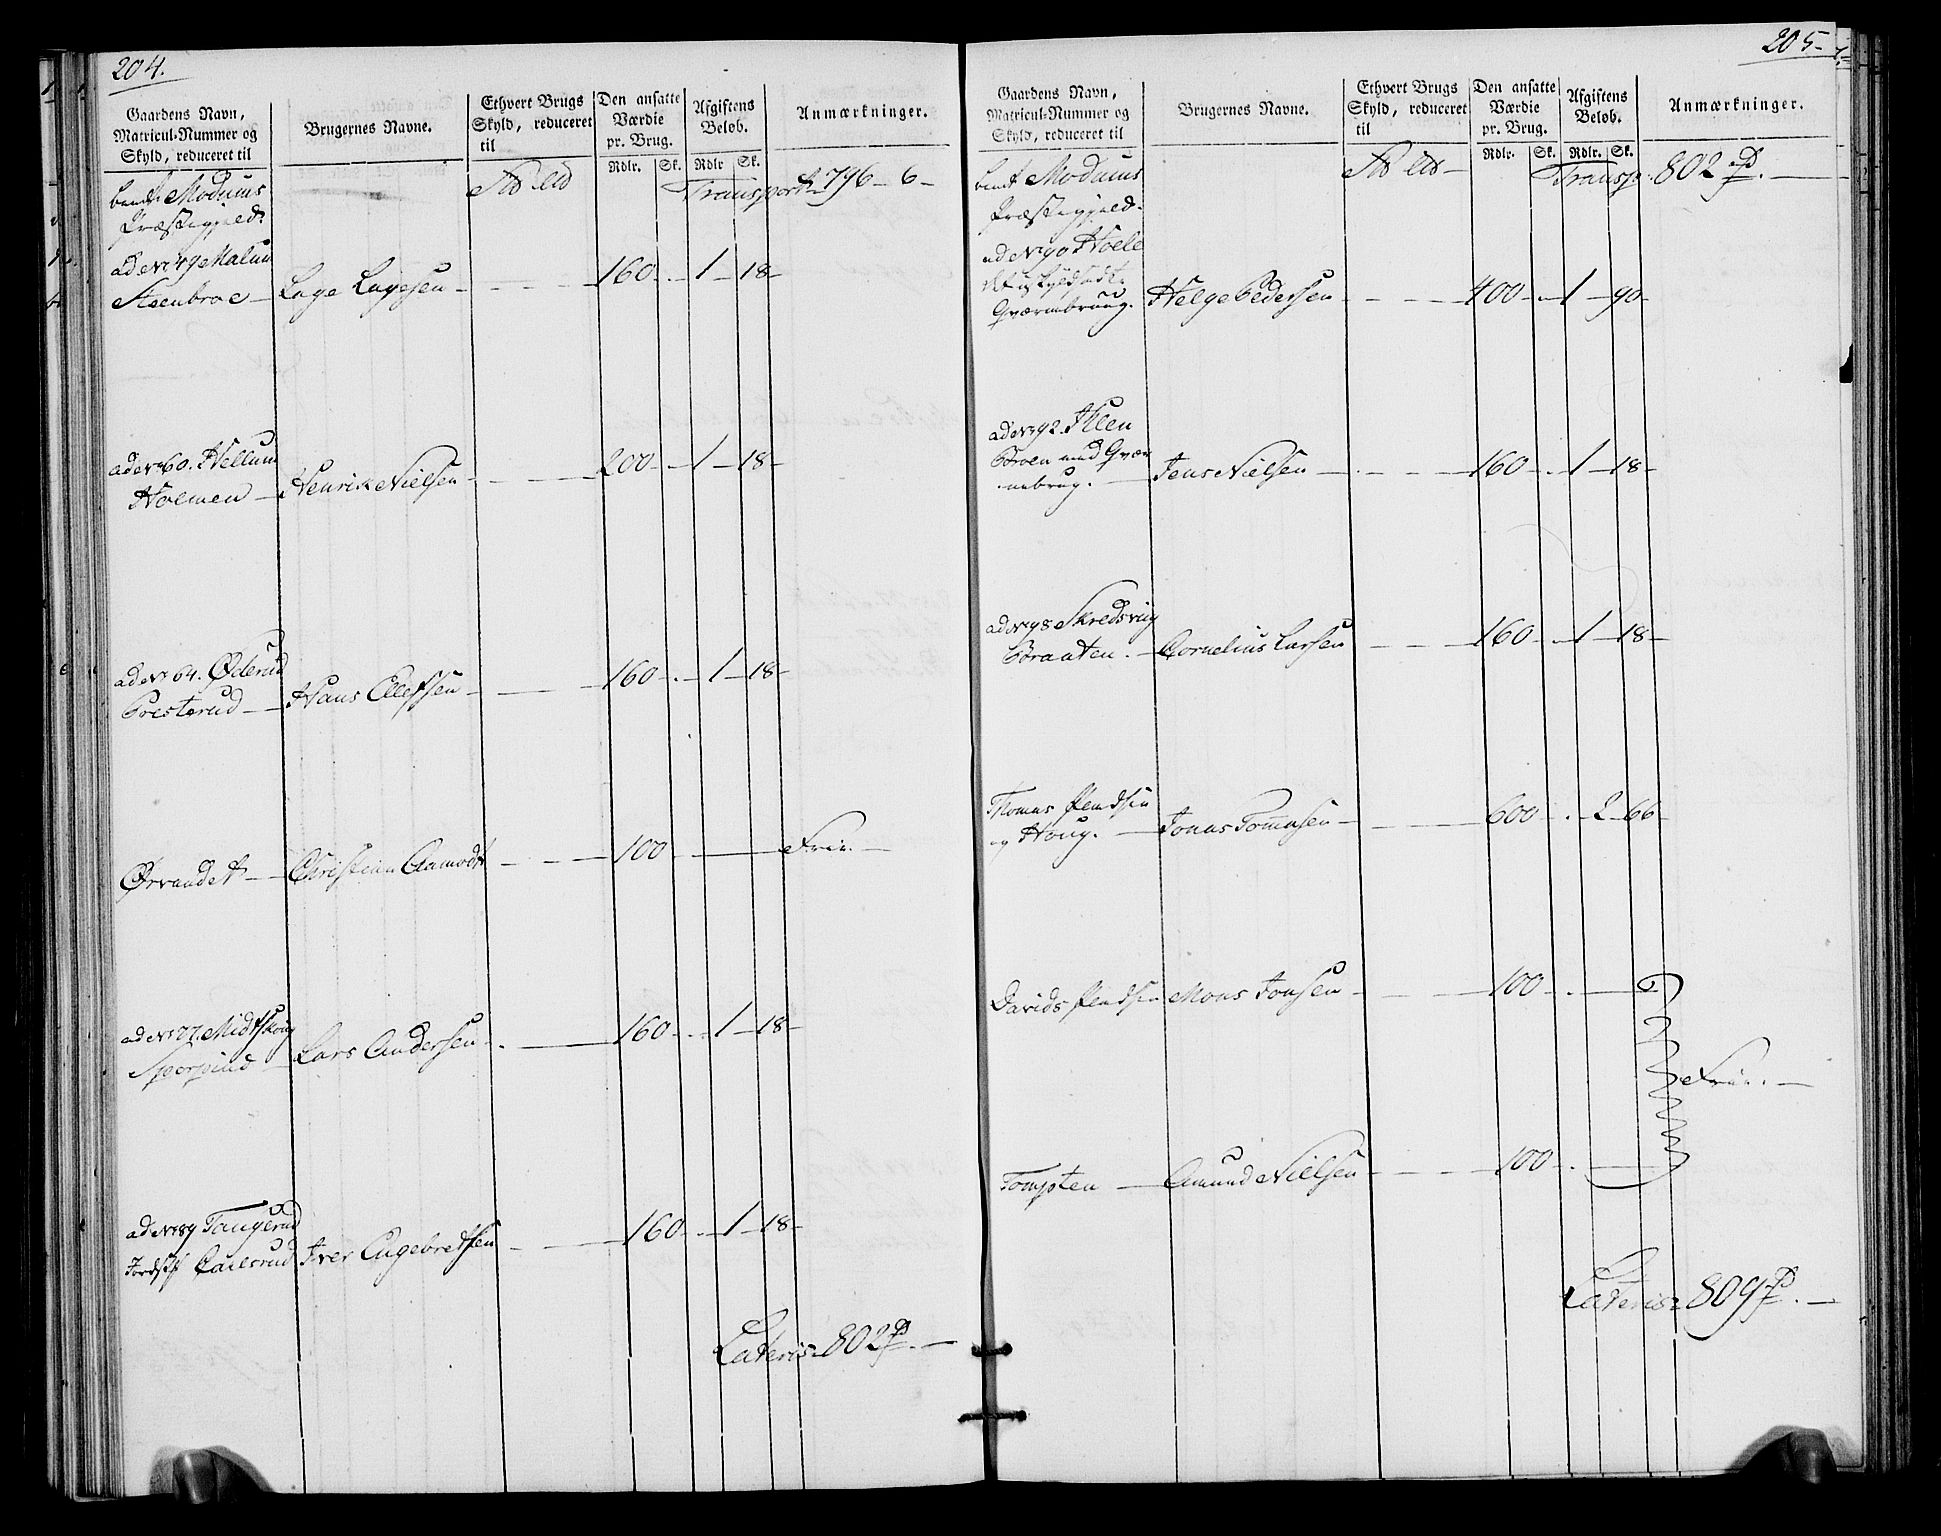 204.
Gaardens Navn,
Matricul-Nummer og
Skyld, reduceret til
Brugernes Navne.
Ethvert Brugs
Skyld, reduceret
til
Den ansatte
Værdie
pr. Brug.
Rdlr. Sk.
Afgiftens
Beløb.
Rdlr Sk.
Anmærkninger.
Modums
Præstegjeld.
Transport 796 - 6 -
ad No 49 Malum
Steenbroe - Lage Lagesen - 160 - 1 - 18 -
ad No 60. Hellum
Holmen - Henrik Nielsen - 200 - 1 - 18 -
ad No 64. Øderud
Presterud - Hans Ollefsen - 160 - 1 - 18 -
Ørvandet - Christian Aamodt - 100 - Frie. -
ad No 77. Midtskoug
Lars Andersen - 160 - 1 - 18 -
ad No 89 Tangerud
Carlsrud Iver Engebretsen - 160 - 1 - 18 -
Lateris 802
205
Gaardens Navn,
Matricul-Nummer og
Skyld, reduceret til
Brugernes Navne.
Ethvert Brugs
Skyld, reduceret
til
Den ansatte
Værdie
pr. Brug.
Rdlr. Sk.
Afgiftens
Beløb.
Rdlr. Sk.
Anmærkninger.
Modums
Præstegjeld.
Transp. 802
ad No 90 Hoele
Qværnbruug. Helge Pedersen - 400 - 1 - 90 -
ad No 92. Ihlen
Broen med Qvær
nebrug. - Jens Nielsen - 160 - 1 - 18 -
ad No 98 Skredsviig
Braaten. - Cornelius Larsen - 160 - 1 - 18 -
Thomas
og Houg. - Jonas Tomasen - 600 - 2 - 66 -
Davids Mons Jonsen - 100 -
Frie. -
Tompten - Amund Nielsen - 100 -
Lateris 809